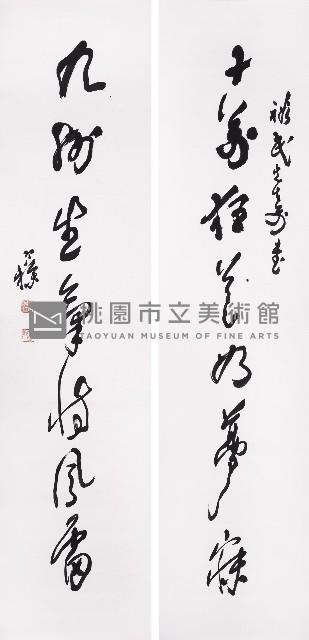 十萬狂花如夢寐
九州生氣恃風雷
桃園市立美術館
TAOYUAN MUSEUM OF FINE ARTS